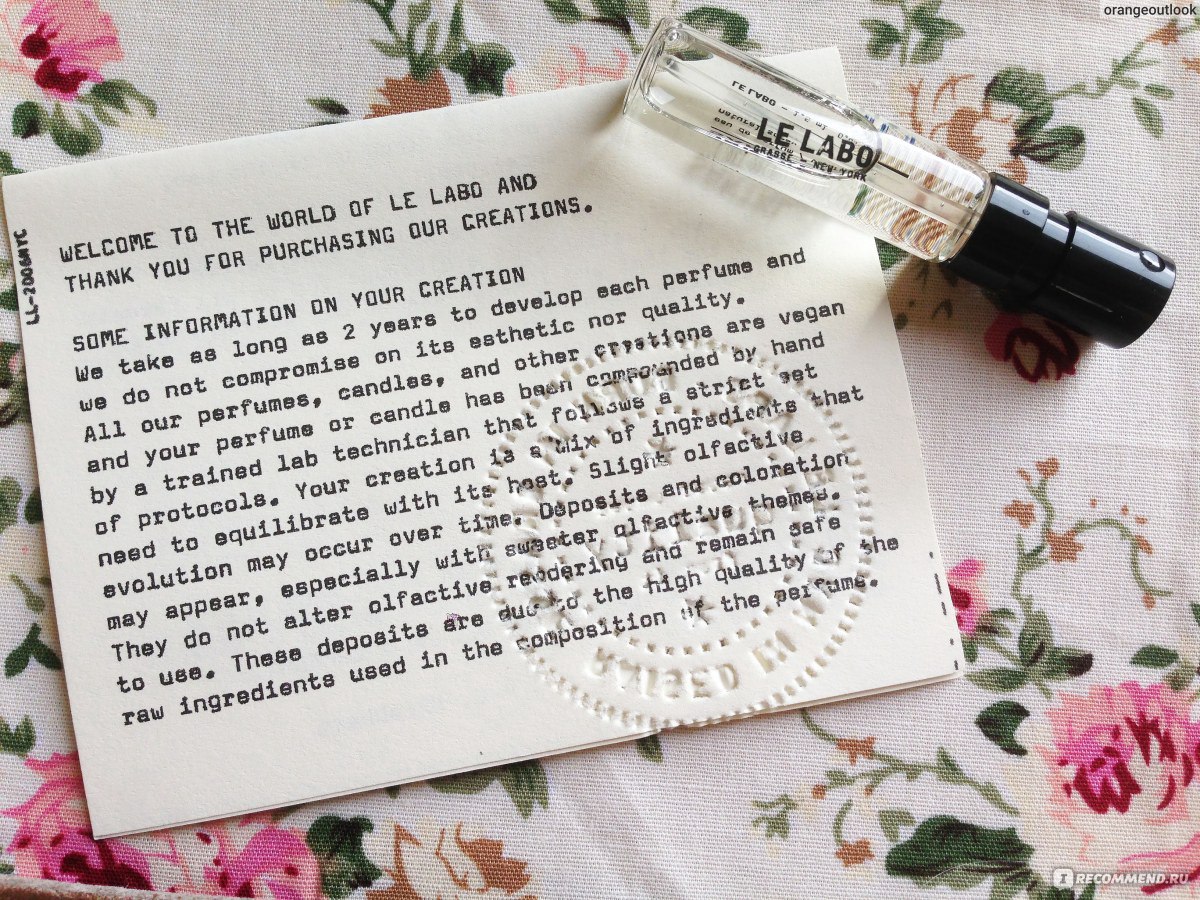 orangeoutlook
LE LABO
GRASSE - NEW YORK
LL-2006NYC
WELCOME TO THE WORLD OF LE LABO AND
THANK YOU FOR PURCHASING OUR CREATIONS.
SOME INFORMATION ON YOUR CREATION
We take as long as 2 years to develop each perfume and
we do not compromise on its esthetic nor quality.
All our perfumes, candles, and other creations are vegan
and your perfume or candle has been compounded by hand
by a trained lab technician that follows a strict set
of protocols. Your creation is a mix of ingredients that
need to equilibrate with its host. Slight olfactive
evolution may occur over time. Deposits and coloration
may appear, especially with sweeter olfactive themes.
They do not alter olfactive rendering and remain safe
to use. These deposits are due to the high quality of the
raw ingredients used in the composition of the perfume.
IRECOMMEND.RU